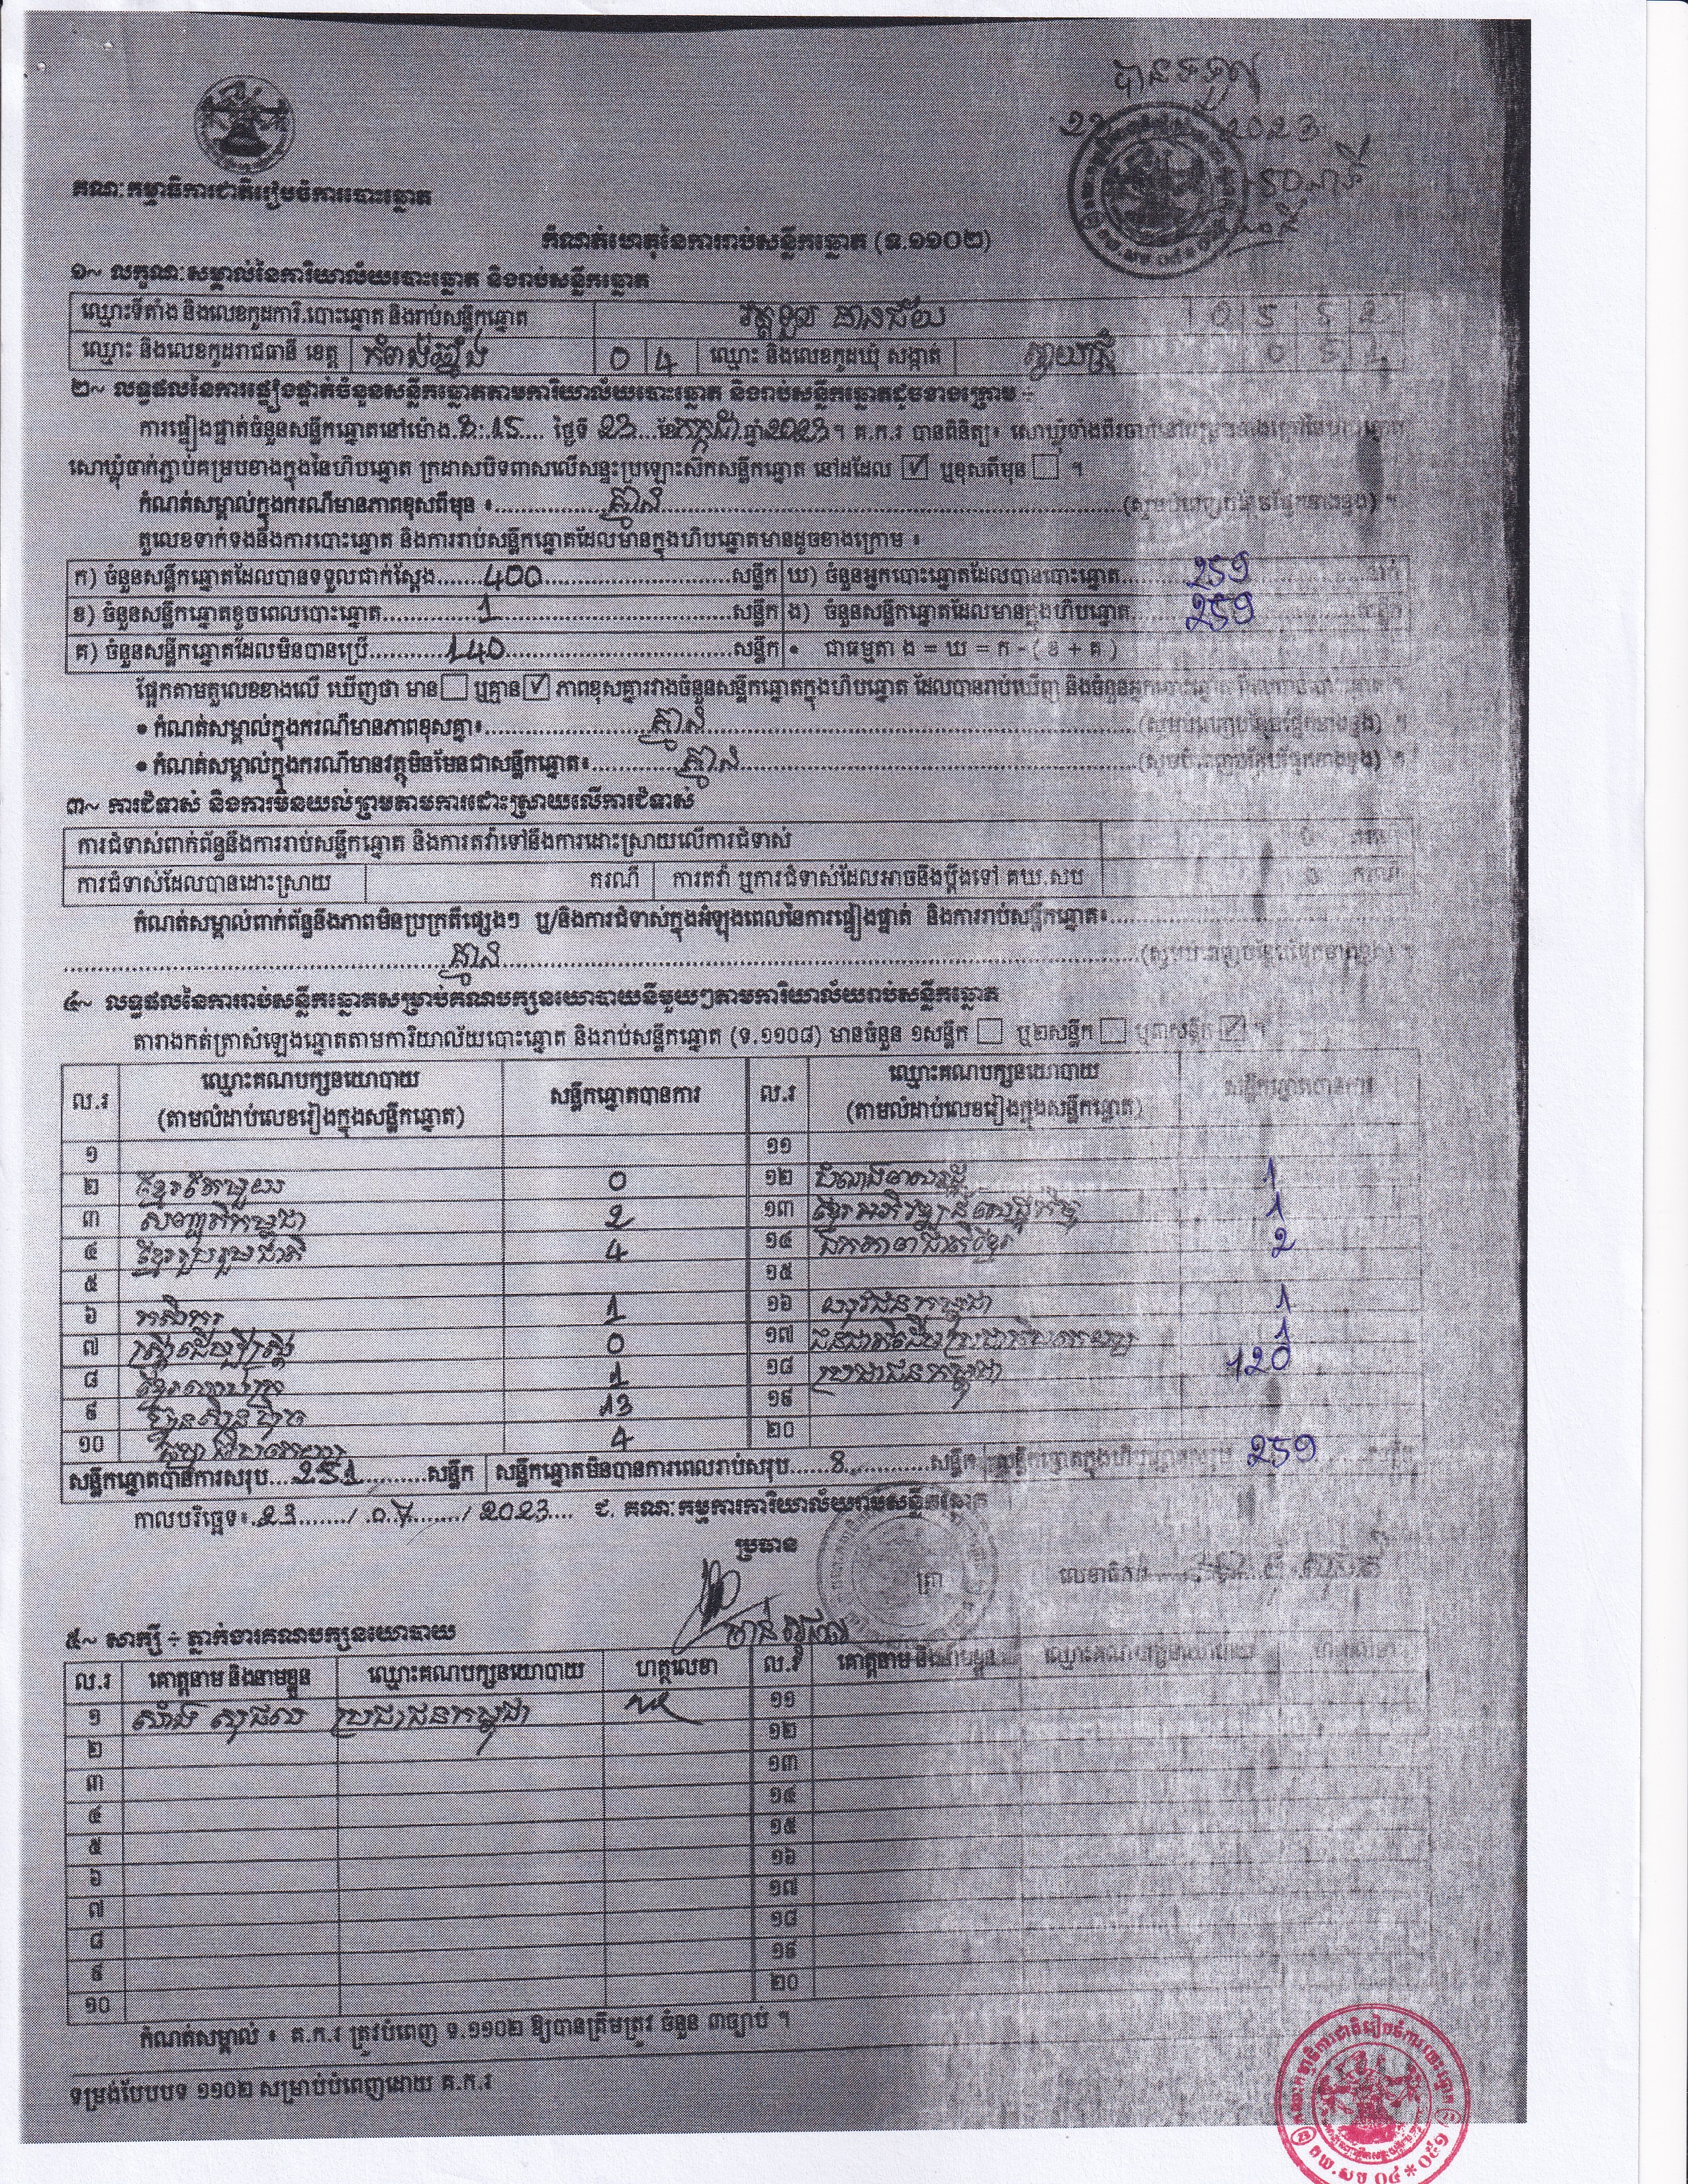 បានទទួល
2023
គណៈកម្មាធិការជាតិរៀបចំការបោះឆ្នោត
កំណត់ហេតុនៃការរាប់សន្លឹកឆ្នោត (ទ.១១០២)
១~ លក្ខណៈសម្គាល់នៃការិយាល័យបោះឆ្នោត និងរាប់សន្លឹកឆ្នោត
ឈ្មោះទីតាំង និងលេខកូដការិ.បោះឆ្នោត និងរាប់សន្លឹកឆ្នោត វត្តទួល មានជ័យ
ឈ្មោះ និងលេខកូដរាជធានី ខេត្ត កំពង់ឆ្នាំង 0 4 ឈ្មោះ និងលេខកូដឃុំ សង្កាត់
២~ លទ្ធផលនៃការផ្ទៀងផ្ទាត់ចំនួនសន្លឹកឆ្នោតតាមការិយាល័យបោះឆ្នោត និងរាប់សន្លឹកឆ្នោតដូចខាងក្រោម ÷
ការផ្ទៀងផ្ទាត់ចំនួនសន្លឹកឆ្នោតនៅម៉ោង 3:15 ថ្ងៃទី 23 ខែ កក្កដា ឆ្នាំ 2023។ គ.ក.រ បានពិនិត្យ៖
សោឃ្មុំធាក់ភ្ជាប់គម្របខាងក្នុងនៃហិបឆ្នោត ក្រដាសបិទពាសលើសន្ទះប្រឡោះសិកសន្លឹកឆ្នោត នៅដដែល ☑ ឬខុសពីមុន ☐ ។
កំណត់សម្គាល់ក្នុងករណីមានភាពខុសពីមុន ៖ គ្មាន
តួលេខទាក់ទងនឹងការបោះឆ្នោត និងការរាប់សន្លឹកឆ្នោតដែលមានក្នុងហិបឆ្នោតមានដូចខាងក្រោម ៖
ក) ចំនួនសន្លឹកឆ្នោតដែលបានទទួលជាក់ស្តែង 400 សន្លឹក ឃ) ចំនួនអ្នកបោះឆ្នោតដែលបានបោះឆ្នោត 259
ខ) ចំនួនសន្លឹកឆ្នោតខូចពេលបោះឆ្នោត 1 សន្លឹក ង) ចំនួនសន្លឹកឆ្នោតដែលមានក្នុងហិបឆ្នោត 259
គ) ចំនួនសន្លឹកឆ្នោតដែលមិនបានប្រើ 140 សន្លឹក • ជាធម្មតា ង = ឃ = ក - ( ខ + គ )
ផ្អែកតាមតួលេខខាងលើ ឃើញថា មាន ☐ ឬគ្មាន ☑ ភាពខុសគ្នារវាងចំនួនសន្លឹកឆ្នោតក្នុងហិបឆ្នោត ដែលបានរាប់ឃើញ
• កំណត់សម្គាល់ក្នុងករណីមានភាពខុសគ្នា៖ គ្មាន
• កំណត់សម្គាល់ក្នុងករណីមានវត្ថុមិនមែនជាសន្លឹកឆ្នោត៖ គ្មាន
៣~ ការជំទាស់ និងការមិនយល់ព្រមតាមការដោះស្រាយលើការជំទាស់
ការជំទាស់ពាក់ព័ន្ធនឹងការរាប់សន្លឹកឆ្នោត និងការតវ៉ាទៅនឹងការដោះស្រាយលើការជំទាស់ 0 ករណី
ការជំទាស់ដែលបានដោះស្រាយ ករណី ការតវ៉ា ឬការជំទាស់ដែលអាចនឹងប្តឹងទៅ គឃ.សប 0 ករណី
កំណត់សម្គាល់ពាក់ព័ន្ធនឹងភាពមិនប្រក្រតីផ្សេងៗ ឬ/និងការជំទាស់ក្នុងអំឡុងពេលនៃការផ្ទៀងផ្ទាត់ និងការរាប់សន្លឹកឆ្នោត៖
គ្មាន
៤~ លទ្ធផលនៃការរាប់សន្លឹកឆ្នោតសម្រាប់គណបក្សនយោបាយនីមួយៗតាមការិយាល័យរាប់សន្លឹកឆ្នោត
តារាងកត់ត្រាសំឡេងឆ្នោតតាមការិយាល័យបោះឆ្នោត និងរាប់សន្លឹកឆ្នោត (ទ.១១០៨) មានចំនួន ១សន្លឹក ☐ ឬ២សន្លឹក ☐ ឬ៣សន្លឹក ☑ ។
ល.រ ឈ្មោះគណបក្សនយោបាយ (តាមលំដាប់លេខរៀងក្នុងសន្លឹកឆ្នោត) សន្លឹកឆ្នោតបានការ ល.រ ឈ្មោះគណបក្សនយោបាយ (តាមលំដាប់លេខរៀងក្នុងសន្លឹកឆ្នោត) សន្លឹកឆ្នោតបានការ
១ ១១
២ ខ្មែរតែមួយ 0 ១២ 1
៣ សញ្ជាតិកម្ពុជា 2 ១៣ ខ្មែរអភិវឌ្ឍន៍សេដ្ឋកិច្ច 1
៤ ខ្មែររួបរួមជាតិ 4 ១៤ ឯកភាពជាតិខ្មែរ 2
៥ ១៥
៦ កសិករ 1 ១៦ យុវជនកម្ពុជា 1
៧ ស្ត្រីដើម្បីស្ត្រី 0 ១៧ ជនជាតិដើមប្រជាធិបតេយ្យ 1
៨ ខ្មែរឈប់ក្រ 1 ១៨ ប្រជាជនកម្ពុជា 120
៩ ហ៊្វុនស៊ិនប៉ិច 13 ១៩
១០ 4 ២០
សន្លឹកឆ្នោតបានការសរុប 251 សន្លឹក សន្លឹកឆ្នោតមិនបានការពេលរាប់សរុប 8 សន្លឹក សន្លឹកឆ្នោតក្នុងហិបឆ្នោតសរុប 259
កាលបរិច្ឆេទ៖ 23 / 07 / 2023 ជ. គណៈកម្មការការិយាល័យរាប់សន្លឹកឆ្នោត
ប្រធាន
លេខាធិការ
៥~ សាក្សី ÷ ភ្នាក់ងារគណបក្សនយោបាយ
ល.រ គោត្តនាម និងនាមខ្លួន ឈ្មោះគណបក្សនយោបាយ ហត្ថលេខា ល.រ គោត្តនាម និងនាមខ្លួន ឈ្មោះគណបក្សនយោបាយ ហត្ថលេខា
១ សុផល ប្រជាជនកម្ពុជា ១១
២ ១២
៣ ១៣
៤ ១៤
៥ ១៥
៦ ១៦
៧ ១៧
៨ ១៨
៩ ១៩
១០ ២០
កំណត់សម្គាល់ ៖ គ.ក.រ ត្រូវបំពេញ ទ.១១០២ ឱ្យបានត្រឹមត្រូវ ចំនួន ៣ច្បាប់ ។
ទម្រង់បែបបទ ១១០២ សម្រាប់បំពេញដោយ គ.ក.រ
គណៈកម្មាធិការជាតិរៀបចំការបោះឆ្នោត
គឃ.សប ០៤ * ០៥១